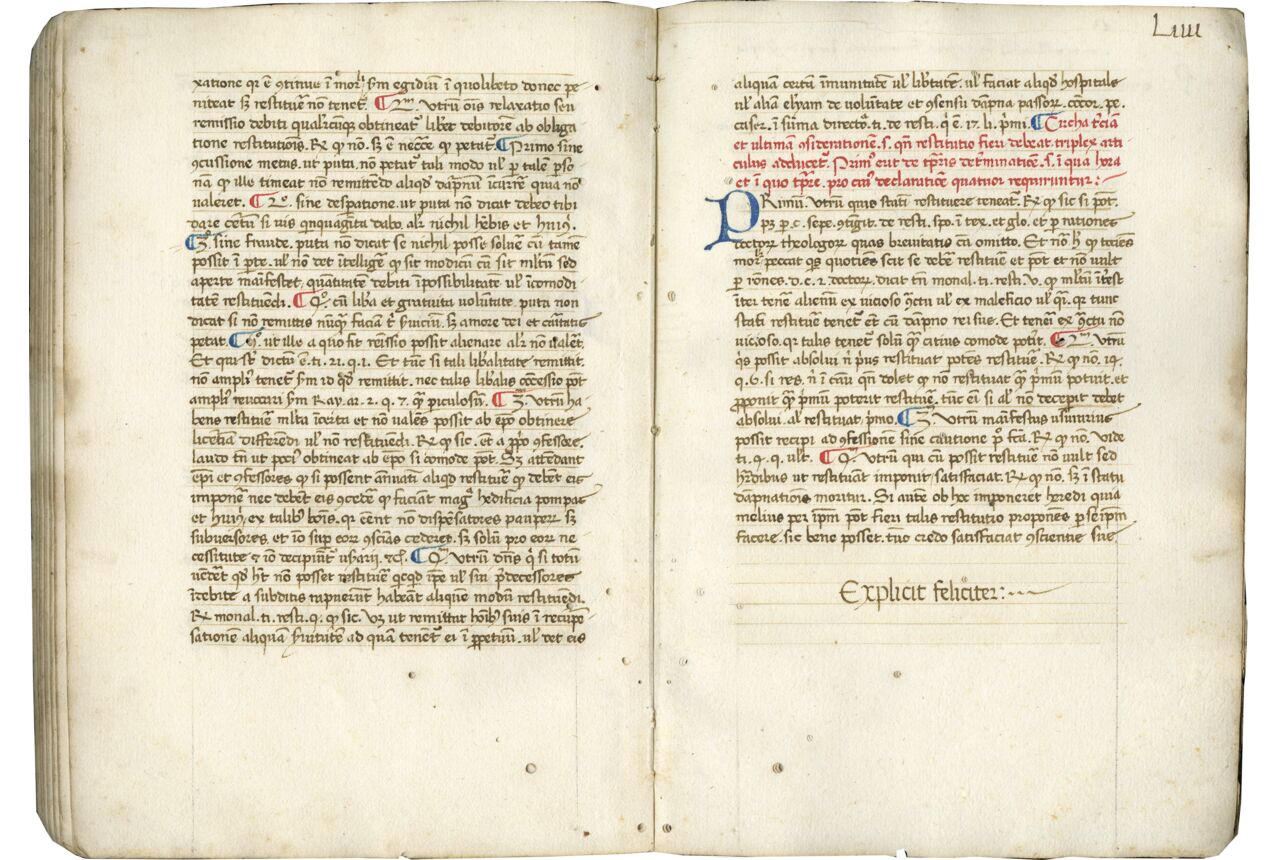 xatione qr ē ꝯtinue ī morͣ sm̄ egidiū ī quolibeto donec pe
niteat sꝫ restituē nō tenet᷑. ¶ 2ᵐ. vtrū ōis relaxatio seu
remissio debiti qualr̄cūqꝫ obtineat᷑ libet debitorē ab obliga
tione restitutiōis. Rꝰ ꝙ nō. sꝫ ē necc̄e ꝙ petat᷑. ¶ Primo sine
ꝯcussione metus. ut puta. nō petat᷑ tali modo ul̓ p talē pso
nā ꝙ ille timeat nō remittēdo aliqd̓ dāpnū īcurrē quia nō
valeret. ¶ 2ᵒ. sine despatione. ut puta nō dicat debeo tibi
dare centū si vis qnquagīta dabo. alr̄ nichil hēbis et huiꝰ.
¶ 3ᵒ. sine fraude. puta nō dicat se nichil posse soluē cū tamē
possit ī pte. ul̓ nō det ītelligē ꝙ sit modicū cū sit ml̓tū sed
aperte manifestet᷑ quātitatē debiti īpossibilitatē ul̓ īcomodi
tatē restituēdi. ¶ 4ᵒ. cū libera et gratuita volūtate. puta non
dicat si nō remittis nūqꝫ faciā t̓ s̓uiciū. sꝫ amore dei et caritatis
petat᷑. ¶ 5ᵒ. ut ille a quo fit reīssio possit alienare alr̄ nō ualeat.
Et qui sīt dictū ē. ti. 21. q. 1. Et tūc si tali lib̓alitate remittit᷑.
nō ampli tenet᷑ sm̄ id qd̓ remittit᷑. nec talis lib̓alis ꝯcessio pōt
ampli reuocari sm̄ Ray. ar. 2. q. 7. qꝫ piculosū. ¶ 3ᵐ. vtrū ha
bens restituē ml̓ta īcerta et nō valēs possit ab ep̄o obtinere
licētiā differēdi ul̓ nō restituēdi. Rꝰ ꝙ sic. et a ppo ꝯfessore.
laudo tn̄ ut poci obtineat ab ep̄o si comode pōt. Sꝫ attēdant
ep̄i et ꝯfessores ꝙ si possent annuati aliqd̓ restituē ꝙ debēt eis
imponē nec debēt eis ꝯcedē ꝙ faciāt magͣ hedificia pompas
et huiꝰ ex talibꝫ bōis. qr cēnt nō dispēsatores paupeꝝ sꝫ
subuersores. et iō sup eoꝝ ꝯsciās cederēt. sꝫ solū pro eoꝝ ne
cessitate ⁊ iō decipiūt᷑ usurarii. ⁊cͣ. ¶ 4ᵐ. vtrū dn̄s q̓ si totū
uēderet qd̓ hꝫ nō posset restituē qcqd̓ ip̄e ul̓ sui p̄decessores
īdebite a subditis rapuerunt habeāt aliquē modū restituēdi.
Rꝰ monal. ti. resti. q. ꝙ sic. Vꝫ ut remittat hoībꝫ suis ī recūpe
sationē aliquā s̓uitutē ad quā tenent᷑ ei ī ppetuū. ul̓ det eis
Liiii
aliquam certā īmunitatē ul̓ lib̓tatē. ul̓ faciat aliqd̓ hospitale
ul̓ aliā elyam de volūtate et ꝯsensu dāpna passoꝝ. cōcor. pe.
caser. ī sūma directoͣ. ti. de resti. q̓ ē. 17. li. p̓mi. ¶ Circha t̓ciā
et ultimā ꝯsiderationē. s. qn̄ restitutio fieri debeat triplex arti
culus adducet᷑. Primꝰ erit de tp̄ris determinatiōe. s. ī qua hora
et ī quo tp̄re. pro cuiꝰ declaratiōe quatuor requirunt᷑ur:~
PRimū. vtrū quis stati restituere teneat᷑. Rꝰ ꝙ sic si pōt.
ptꝫ p. c. sepe. ꝯtīgit. de resti. spo. ī tex. et glo. et p rationes
doctoꝝ theologoꝝ quas breuitatis cā omitto. Et nō hꝫ ꝙ tociēs
morͣ peccat qs quotiēs scit se debē restituē et pōt et nō vult
p ioēs. d. c. 2. doctor. dicit tn̄ monal. ti. resti. v. ꝙ ml̓tū īt̓est
īter tenē alienū ex vicioso ꝯctu ul̓ ex maleficio ul̓ qͣi. qr tunc
stati restituē tenet᷑ et cū dāpno rei sue. Et tenē ex ꝯctu nō
vicioso. qr talis tenet᷑ solū qꝫ citius comode pōtit. ¶ 2ᵐ. vtrū
qs possit absolui n̄ p̓us restituat potēs restituē. Rꝰ ꝙ nō. 14.
q. 6. si res. n̄ ī cāu qn̄ dolet ꝙ nō restituat qꝫ p̓mū potuit. et
pponit ꝙ qꝫ p̓mū poterit restituē. tūc ei si al̓ nō decepit debet
absolui. al̓ restituat p̓mo. ¶ 3ᵐ. vtrū māifestus usurarius
possit recipi ad ꝯfessionē sine cautione p̓ fcā. Rꝰ ꝙ nō. vide
ti. q. q. ult. ¶ 4ᵐ. vtrū qui cū possit restituē nō vult sed
h̓edibus ut restituāt imponit satisfaciat. Rꝰ ꝙ nō. sꝫ ī statu
dāpnatiōis moritur. Si autē ob hoc imponeret heredi quia
melius per ip̄m pōt fieri talis restitutio proponēs p se ip̄m
facere. sic bene posset. tūc credo satisfaciat ꝯscientie sue
Explicit feliciter:~